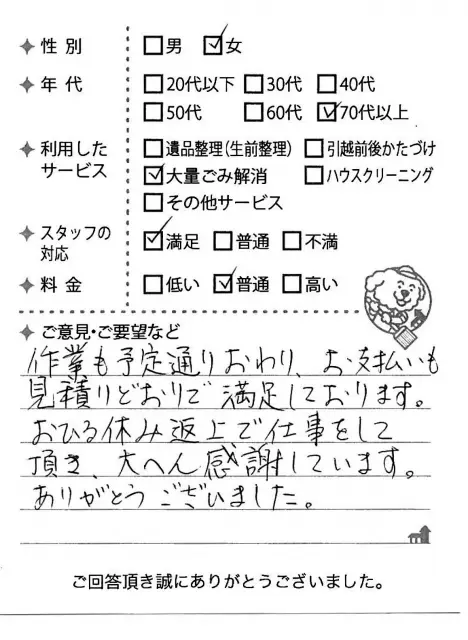 ✦ 性別 □男 ☑女
✦ 年代 □20代以下 □30代 □40代
□50代 □60代 ☑70代以上
✦ 利用した □遺品整理(生前整理) □引越前後かたづけ
サービス ☑大量ごみ解消 □ハウスクリーニング
□その他サービス
✦ スタッフの
対応 ☑満足 □普通 □不満
✦ 料金 □低い ☑普通 □高い
✦ ご意見・ご要望など
作業も予定通りおわり、お支払いも
見積りどおりで満足しております。
おひる休み返上で仕事をして
頂き、大へん感謝しています。
ありがとうございました。
ご回答頂き誠にありがとうございました。